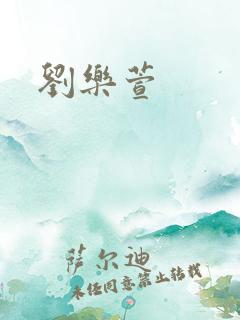 劉樂萱
萨尔迪
未经同意禁止转载